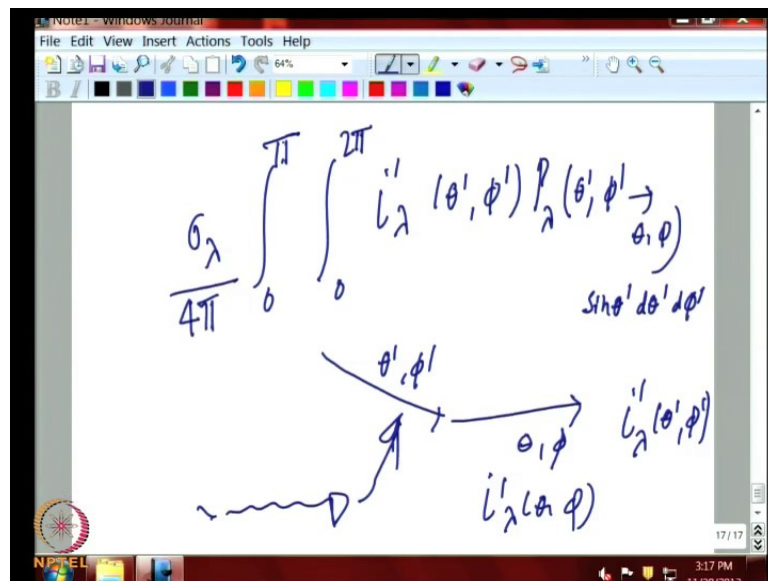 Note1 - Windows Journal
File Edit View Insert Actions Tools Help
64%
B I
π 2π
σ_λ / 4π ∫ ∫ i'_λ (θ', φ') P_λ (θ', φ' →
0 0 θ, φ)
sinθ' dθ' dφ'
θ', φ'
θ, φ i'_λ (θ', φ')
i'_λ (θ, φ)
17 / 17
NPTEL
3:17 PM